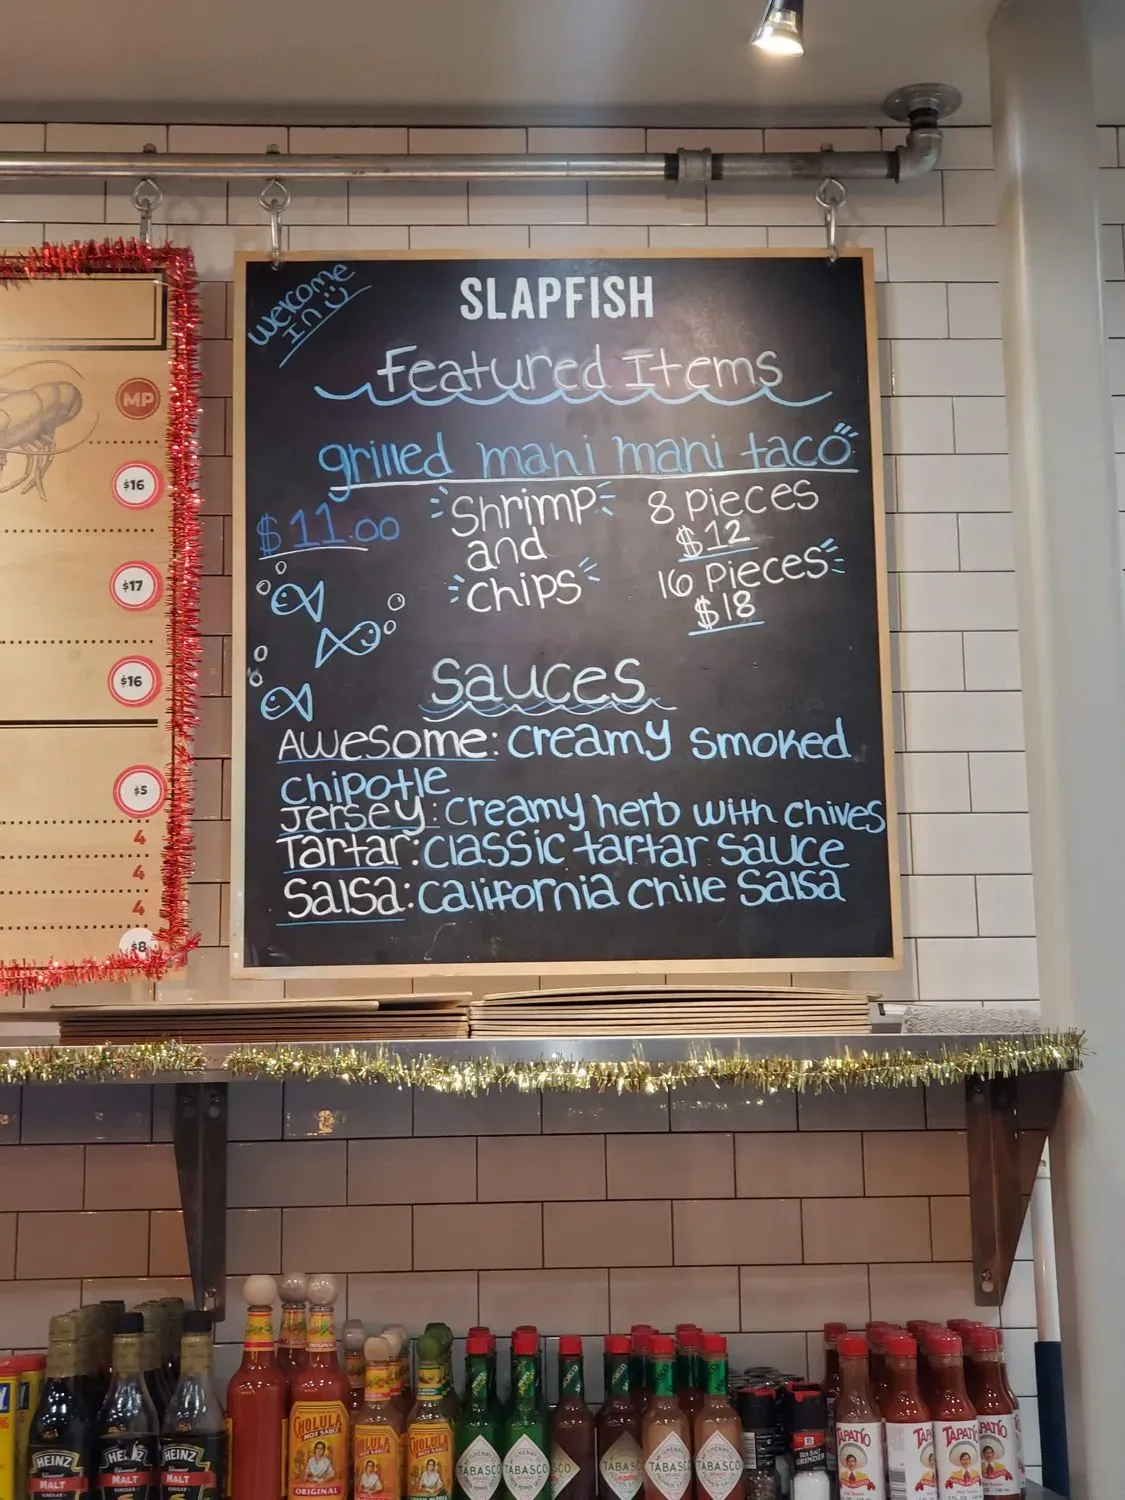 Welcome
In
SLAPFISH
Featured Items
grilled mahi mahi taco
$11.00
Shrimp
and
chips
8 pieces
$12
16 pieces
$18
Sauces
Awesome: creamy smoked
chipotle
Jersey: creamy herb with chives
Tartar: classic tartar sauce
Salsa: california chile salsa
MP
$16
$17
$16
$5
4
4
4
$8
HEINZ
MALT
VINEGAR
HEINZ
MALT
VINEGAR
HEINZ
MALT
VINEGAR
ORIGINAL
CHOLULA
HOT SAUCE
ORIGINAL
TABASCO
TABASCO
TABASCO
TABASCO
SEA SALT
GRINDER
TAPATIO
TAPATIO
TAPATIO